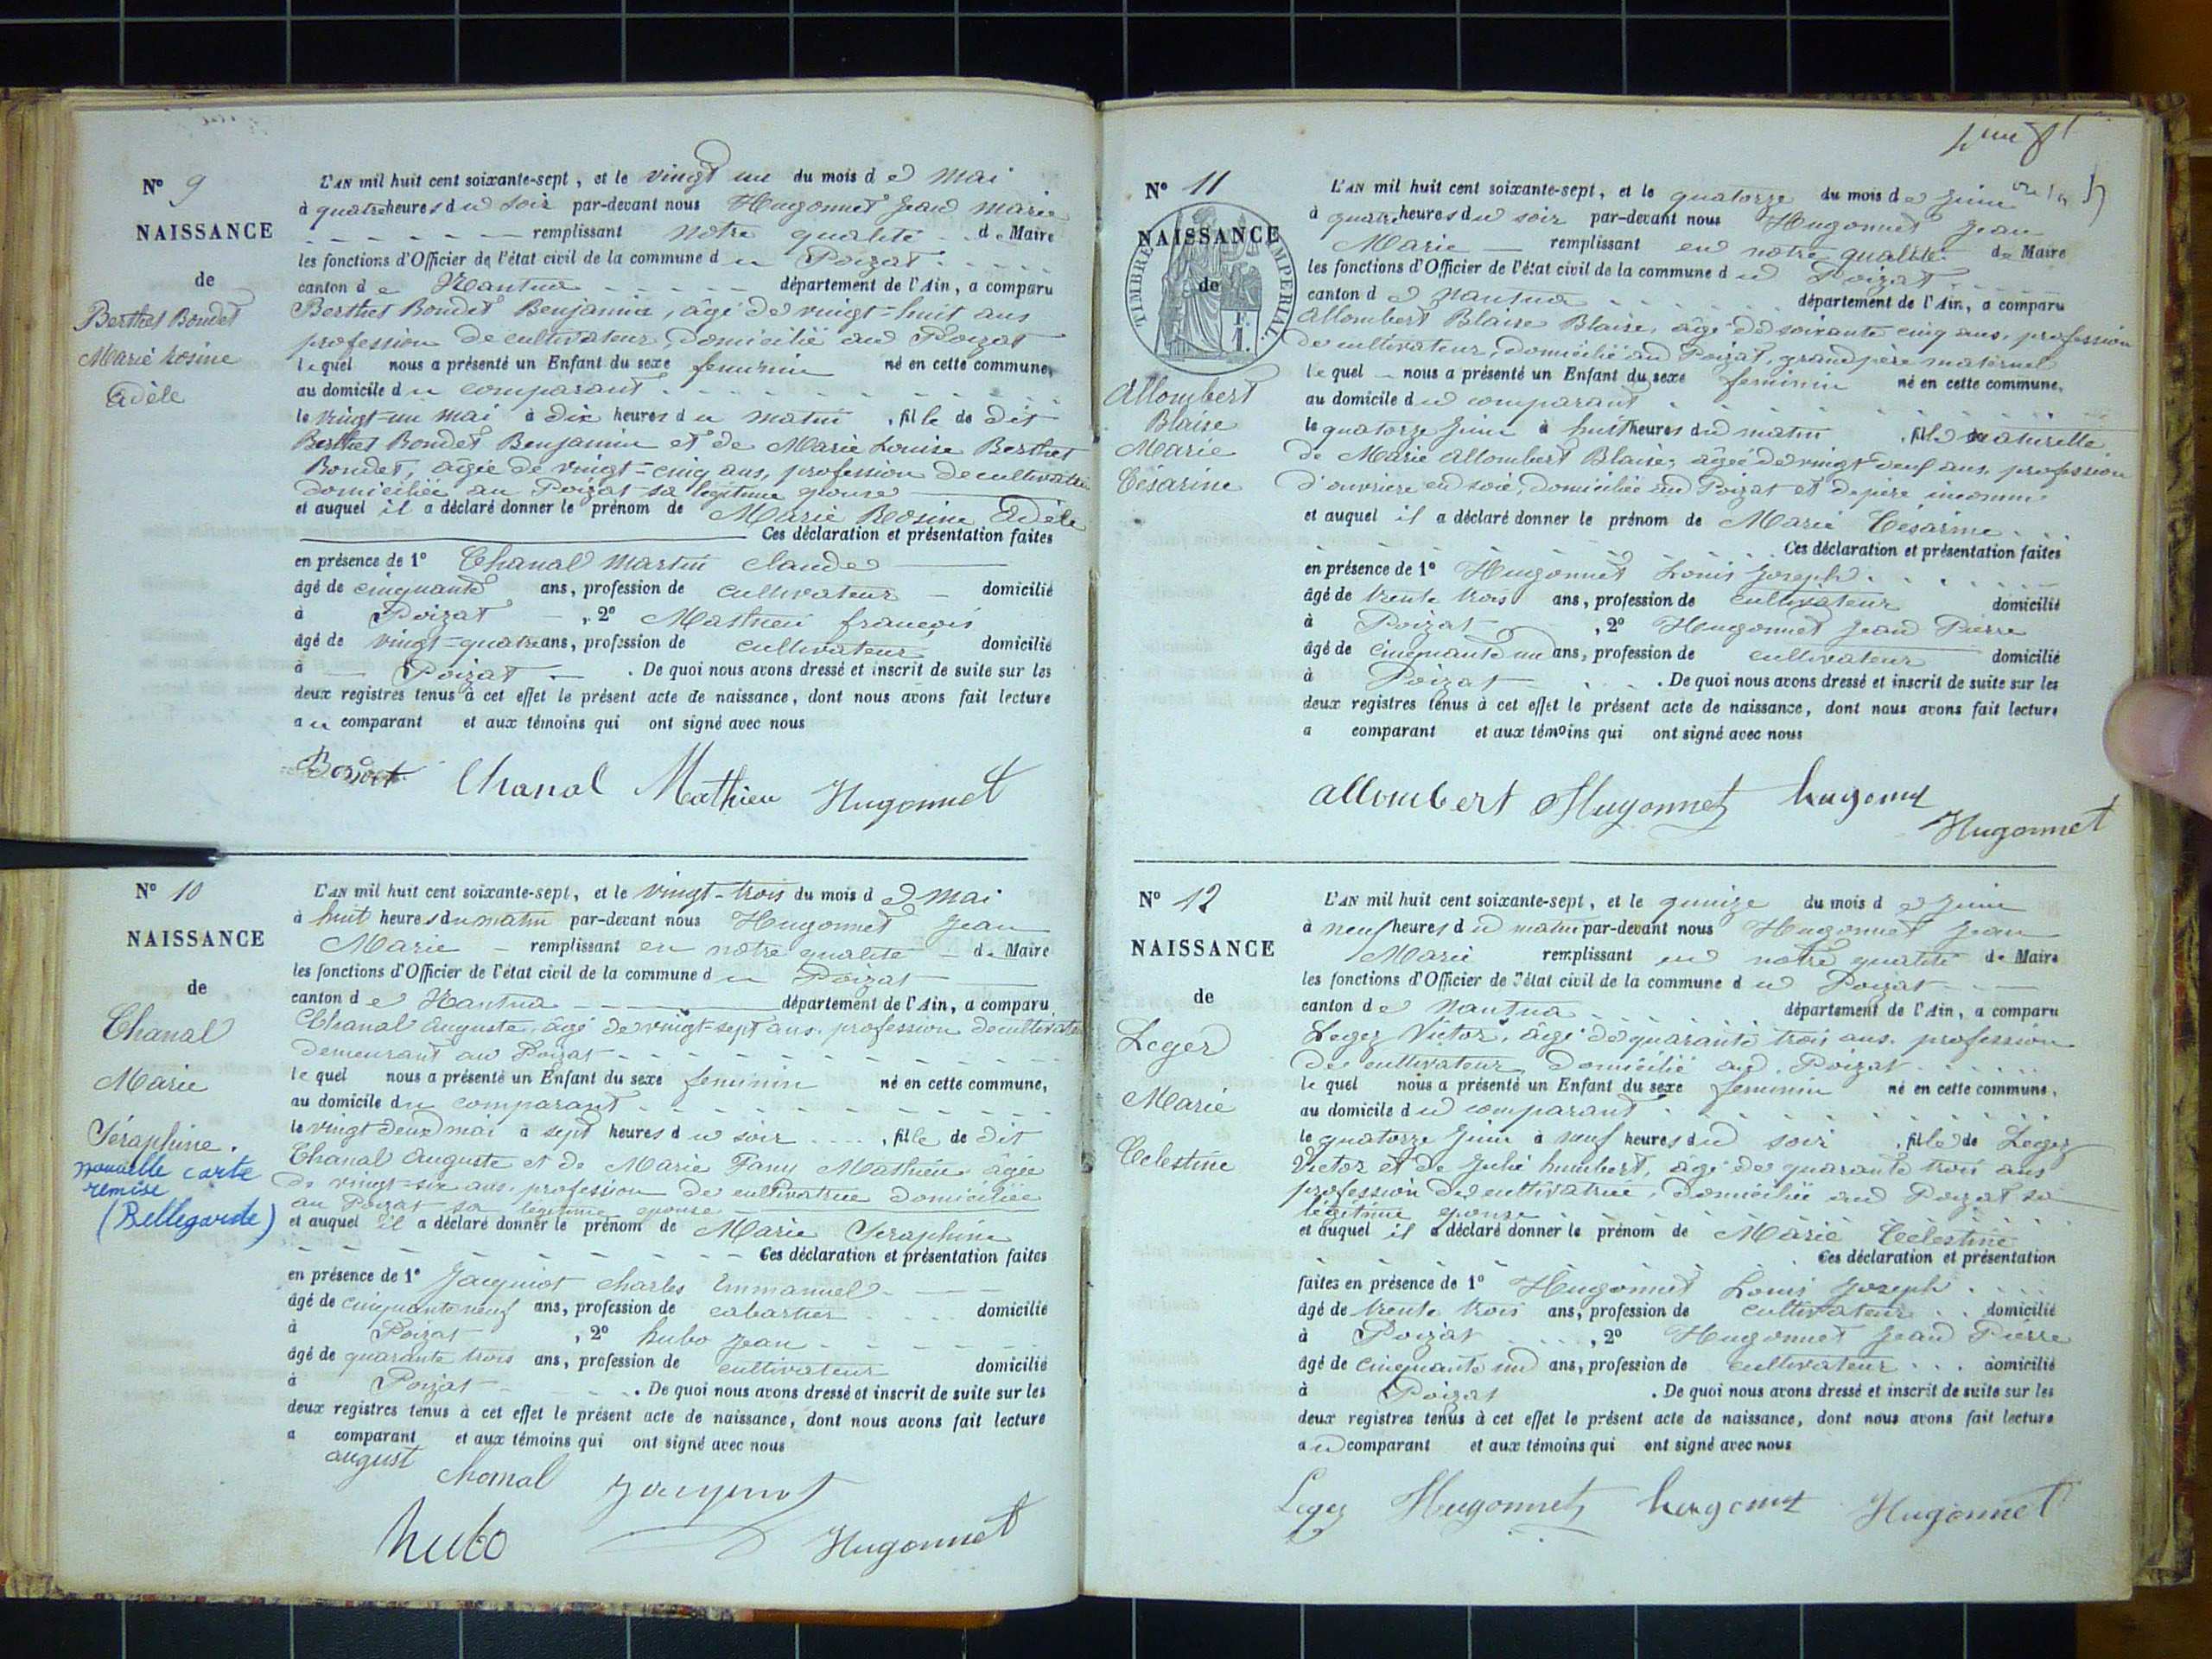 N° 9
NAISSANCE
de
Berthet Bondet
Marie Rosine
Adèle
L'AN mil huit cent soixante-sept, et le vingt un du mois de Mai
à quatre heures du soir par-devant nous Hugonnet Jean Marie
remplissant notre qualité de Maire
les fonctions d'Officier de l'état civil de la commune du Poizat
canton de Nantua département de l'Ain, a comparu
Berthet Bondet Benjamin, âgé de vingt-huit ans
profession de cultivateur, domicilié au Poizat
lequel nous a présenté un Enfant du sexe feminin né en cette commune,
au domicile du comparant
le vingt-un mai à dix heures du matin, fille de dit
Berthet Bondet Benjamin et de Marie Louise Berthet
Bondet, âgée de vingt-cinq ans, profession de cultivatrice
domiciliée au Poizat sa légitime épouse
et auquel il a déclaré donner le prénom de Marie Rosine Adèle
Ces déclaration et présentation faites
en présence de 1° Chanal Martin Claude
âgé de cinquante ans, profession de cultivateur domicilié
à Poizat, 2° Mathieu françois
âgé de vingt-quatre ans, profession de cultivateur domicilié
à Poizat. De quoi nous avons dressé et inscrit de suite sur les
deux registres tenus à cet effet le présent acte de naissance, dont nous avons fait lecture
au comparant et aux témoins qui ont signé avec nous
Chanal Mathieu Hugonnet
N° 10
NAISSANCE
de
Chanal
Marie
Séraphine.
nouvelle carte
remise
(Bellegarde)
L'AN mil huit cent soixante-sept, et le vingt-trois du mois de Mai
à huit heures du matin par-devant nous Hugonnet Jean
Marie remplissant en notre qualité de Maire
les fonctions d'Officier de l'état civil de la commune du Poizat
canton de Nantua département de l'Ain, a comparu
Chanal Auguste, âgé de vingt-sept ans. profession de cultivateur
demeurant au Poizat
lequel nous a présenté un Enfant du sexe feminin né en cette commune,
au domicile du comparant
le vingt deux mai à sept heures du soir, fille de dit
Chanal Auguste et de Marie Fany Mathieu âgée
de vingt-six ans. profession de cultivatrice domiciliée
au Poizat sa légitime épouse
et auquel il a déclaré donner le prénom de Marie Seraphine
Ces déclaration et présentation faites
en présence de 1° Jacquiot Charles Emmanuel
âgé de cinquante neuf ans, profession de cabartier domicilié
à Poizat, 2° hubo Jean
âgé de quarante trois ans, profession de cultivateur domicilié
à Poizat. De quoi nous avons dressé et inscrit de suite sur les
deux registres tenus à cet effet le présent acte de naissance, dont nous avons fait lecture
a comparant et aux témoins qui ont signé avec nous
august chanal
hubo Hugonnet
N° 11
NAISSANCE
de
TIMBRE IMPERIAL
Allombert
Blaise
Marie
Césarine
L'AN mil huit cent soixante-sept, et le quatorze du mois de Juin
à quatre heures du soir par-devant nous Hugonnet Jean
Marie remplissant en notre qualité de Maire
les fonctions d'Officier de l'état civil de la commune du Poizat
canton de Nantua département de l'Ain, a comparu
Allombert Blaise Blaise, âgé de soixante cinq ans, profession
de cultivateur, domicilié au Poizat, grand père maternel
lequel nous a présenté un Enfant du sexe feminin né en cette commune,
au domicile du comparant
le quatorze Juin à huit heures du matin, fille naturelle
de Marie Allombert Blaise, âgée de vingt neuf ans, profession
d'ouvrière en soie, domiciliée au Poizat et de père inconnu
et auquel il a déclaré donner le prénom de Marie Césarine
Ces déclaration et présentation faites
en présence de 1° Hugonnet Louis Joseph
âgé de trente trois ans, profession de cultivateur domicilié
à Poizat, 2° Hugonnet Jean Pierre
âgé de cinquante un ans, profession de cultivateur domicilié
à Poizat. De quoi nous avons dressé et inscrit de suite sur les
deux registres tenus à cet effet le présent acte de naissance, dont nous avons fait lecture
a comparant et aux témoins qui ont signé avec nous
allombert Hugonnet hugonnet
Hugonnet
N° 12
NAISSANCE
de
Leger
Marie
Celestine
L'AN mil huit cent soixante-sept, et le quinze du mois de Juin
à neuf heures du matin par-devant nous Hugonnet Jean
Marie remplissant en notre qualité de Maire
les fonctions d'Officier de l'état civil de la commune du Poizat
canton de Nantua département de l'Ain, a comparu
Leger Victor, âgé de quarante trois ans. profession
de cultivateur, domicilié au Poizat
lequel nous a présenté un Enfant du sexe feminin né en cette commune,
au domicile du comparant
le quatorze Juin à neuf heures du soir, fille de Leger
Victor et de Julie humbert, âgé de quarante trois ans
profession de cultivatrice, domiciliée au Poizat sa
légitime épouse
et auquel il a déclaré donner le prénom de Marie Celestine
Ces déclaration et présentation
faites en présence de 1° Hugonnet Louis Joseph
âgé de trente trois ans, profession de cultivateur domicilié
à Poizat, 2° Hugonnet Jean Pierre
âgé de cinquante un ans, profession de cultivateur domicilié
à Poizat. De quoi nous avons dressé et inscrit de suite sur les
deux registres tenus à cet effet le présent acte de naissance, dont nous avons fait lecture
au comparant et aux témoins qui ont signé avec nous
Leger Hugonnet hugonnet Hugonnet